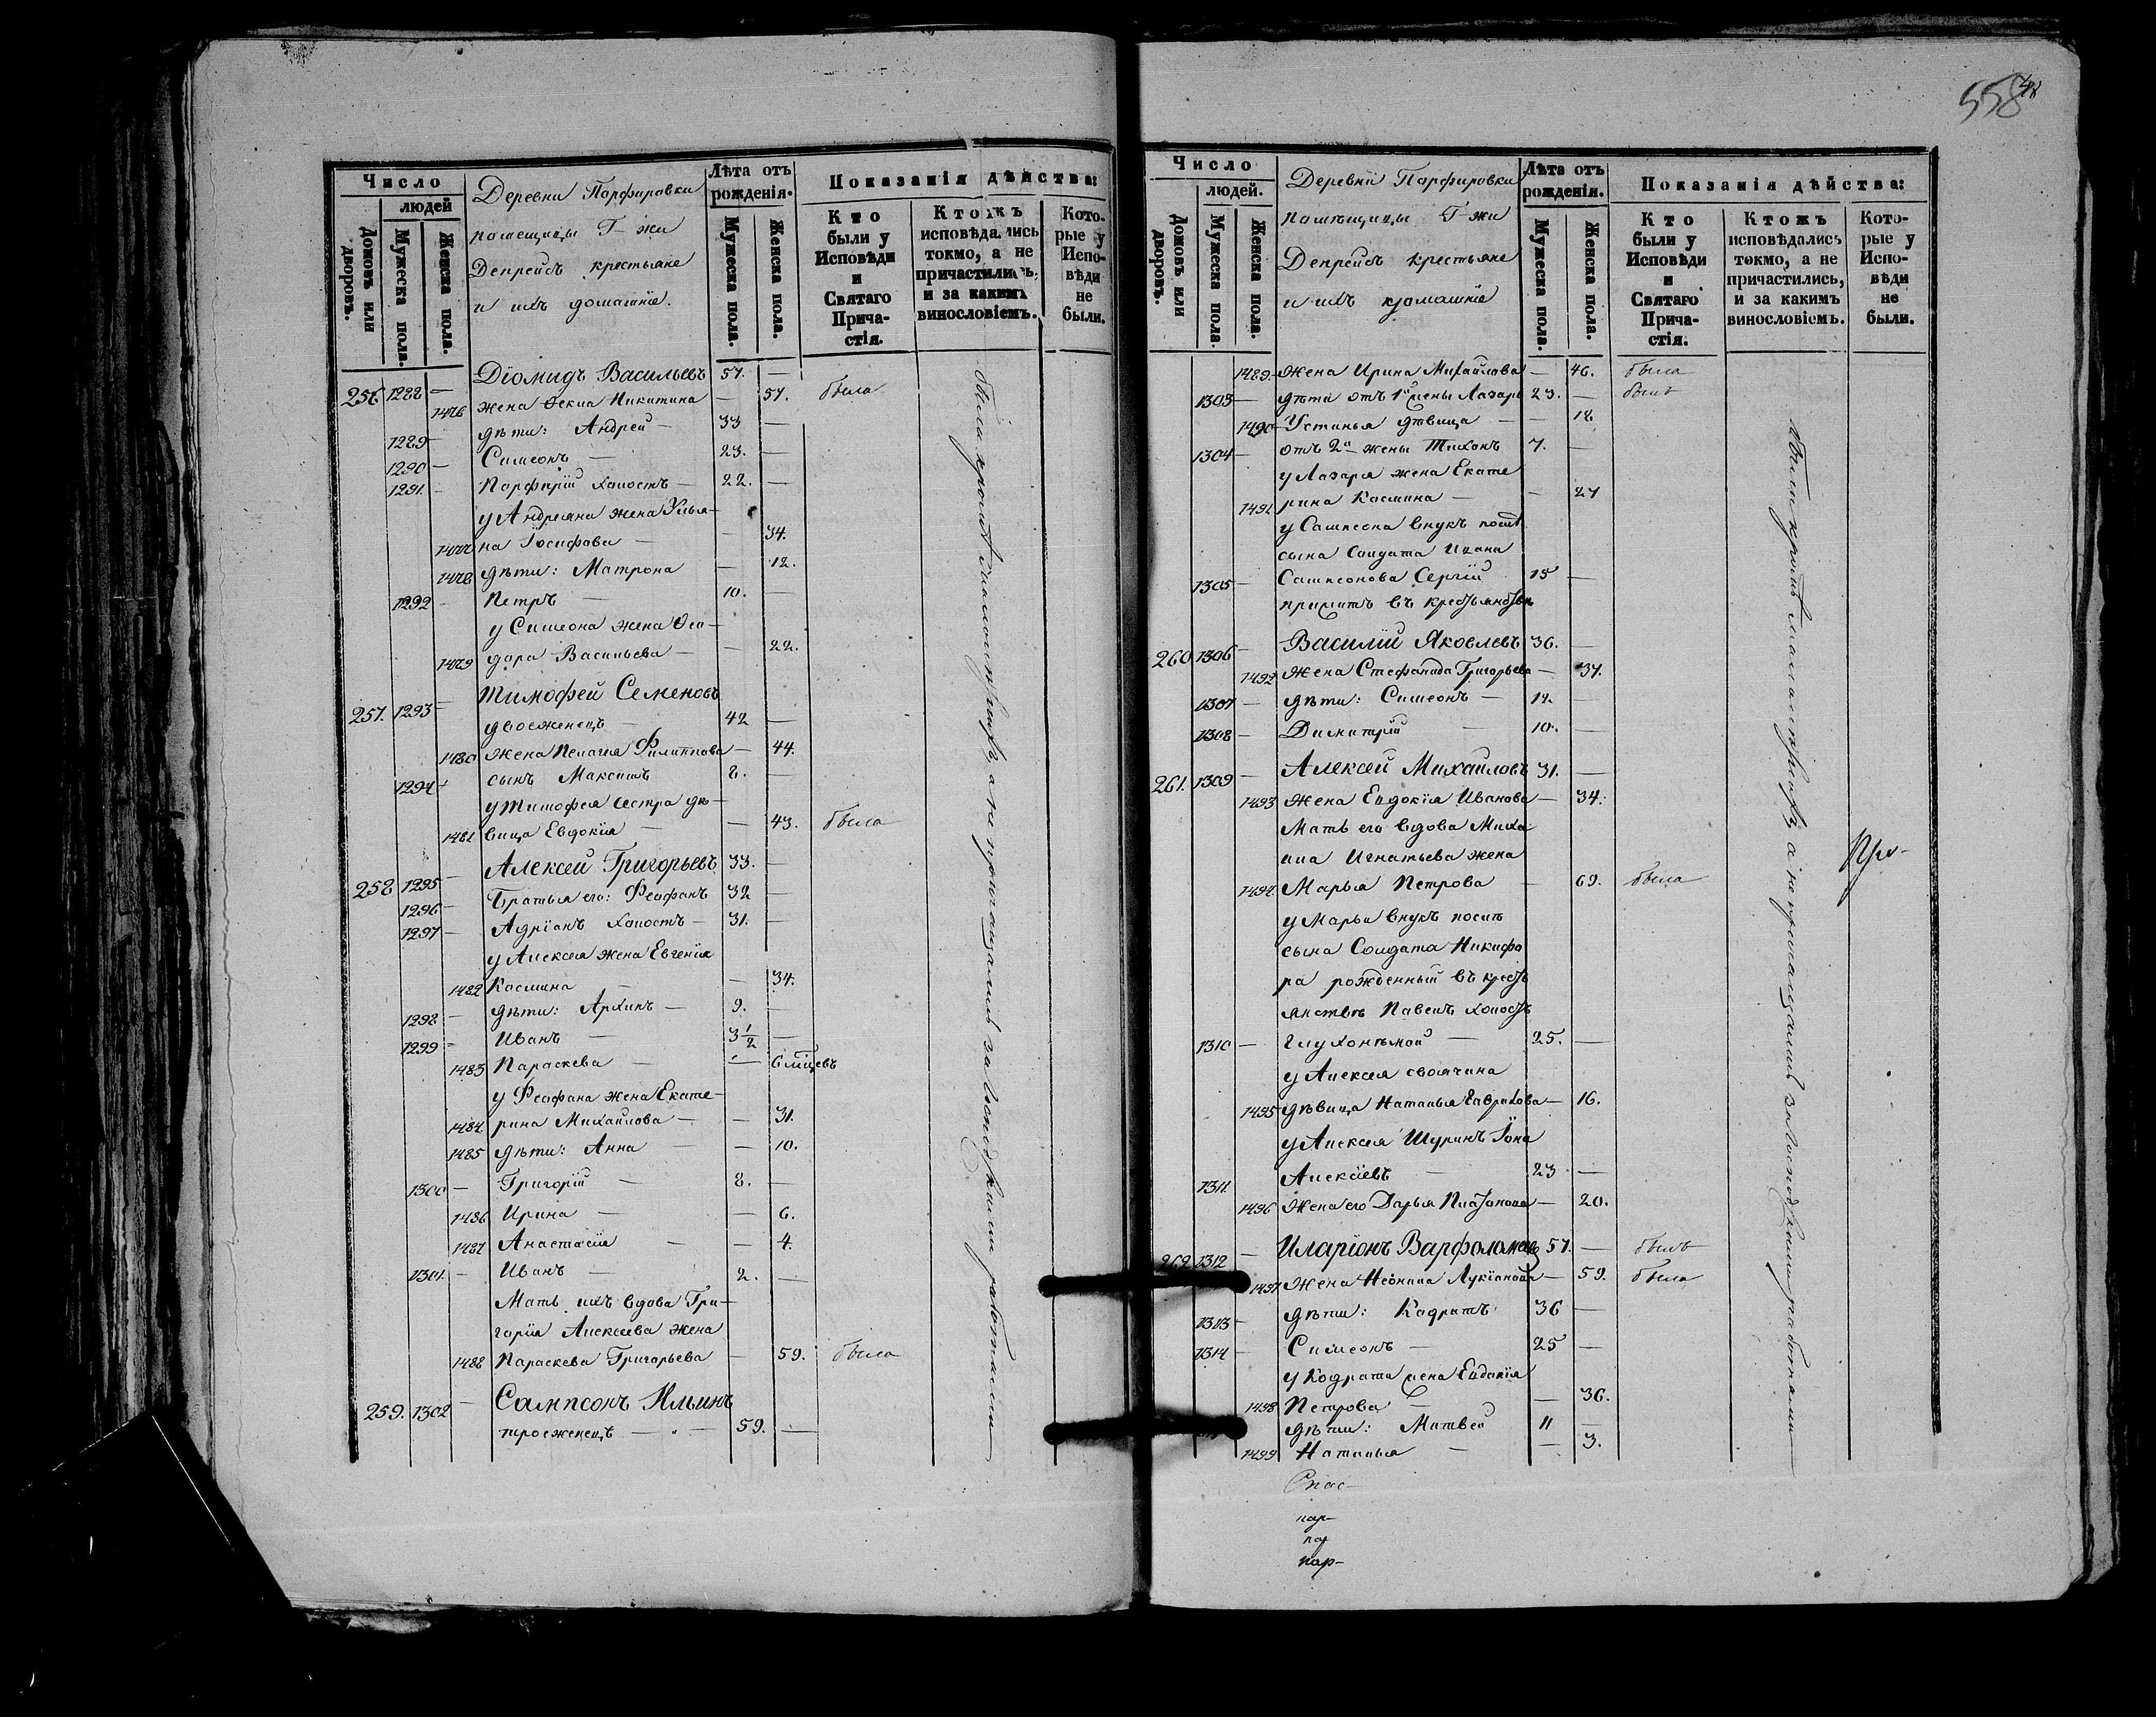 558 48
Число
людей
Домовъ или дворовъ.
Мужеска пола.
Женска пола.
Деревни Порфировки
помещицы Г-жи
Депрейсъ крестьяне
и ихъ домашніе.
Лѣта отъ рожденія.
Мужеска пола.
Женска пола.
Показанія дѣйства:
Кто были у Исповѣди и Святаго Причастія.
Ктожъ исповѣдались токмо, а не причастились, и за какимъ винословіемъ.
Которые у Исповѣди не были.
256 1288 — Діомидъ Васильевъ 57. —
1476 жена Фекла Никитина — 57. была
1289 — дѣти: Андрей — 33 —
1290 — Симеонъ — 23. —
1291. — Порфирій холостъ — 22. —
у Андреяна жена Улья-
1477 на Іосифова — — 34.
1478 дѣти: Матрона — 12.
1292 — Петръ — 10. —
у Симеона жена Ѳео-
1479 дора Васильева — — 22.
257. 1293 — Тимофей Семеновъ
двоеженецъ — 42 —
1480 жена Пелагея Филиппова — 44.
1294 — сынъ Максимъ 8. —
у Тимофея сестра дѣ-
1481 вица Евдокія — — 43. была
258 1295 — Алексей Григорьевъ 33. —
1296 — Братья его: Феофанъ 32 —
1297 — Адріанъ холостъ — 31. —
у Алексея жена Евгенія
1482 Космина — — 34.
1298 — дѣти: Архипъ — 9. —
1299 — Иванъ — 3 1/2 —
1483 Параскева — — 6 мцевъ
у Феофана жена Екате-
1484 рина Михайлова — — 31.
1485 дѣти: Анна — — 10.
1300 — Григорій — 8. —
1486 Ирина — — 6.
1487 Анастасія — — 4.
1301. — Иванъ — 2. —
Мать ихъ вдова Гри-
горія Алексеева жена
1488 Параскева Григорьева — 59. была
259. 1302 — Сампсонъ Ильинъ
троеженецъ — — 59. —
были кромѣ малолѣтнихъ, а не причащались за Господскими работами
Число
людей.
Домовъ или дворовъ.
Мужеска пола.
Женска пола.
Деревни Порфировки
помѣщицы Г-жи
Депрейсъ крестьяне
и ихъ домашніе
Лѣта отъ рожденія.
Мужеска пола.
Женска пола.
Показанія дѣйства:
Кто были у Исповѣди и Святаго Причастія.
Ктожъ исповѣдались токмо, а не причастились, и за какимъ винословіемъ.
Которые у Исповѣди не были.
1489 Жена Ирина Михайлова — 46. была
1303 — дѣти отъ 1й жены Лазарь 23. — былъ
1490 Устинья дѣвица — — 18
1304 — отъ 2й жены Тихонъ 7. —
у Лазаря жена Екате
1491. рина Космина — — 27
у Сампсона внукъ послѣ
сына Солдата Ивана
1305 — Сампсонова Сергій 15 —
прижитъ въ крестьянствѣ
260 1306 — Василій Яковлевъ 36. —
1492 Жена Стефанида Григорьева — 37.
1307 — дѣти: Симеонъ — 12. —
1308 — Димитрій — 10. —
261. 1309 — Алексей Михайловъ 31. —
1493 Жена Евдокія Иванова — 34.
Мать его вдова Миха
ила Игнатьева жена
1494 Марья Петрова — 69. была
у Марьи внукъ послѣ
сына Солдата Никифо
ра рожденный въ кресть
янствѣ Павелъ холостъ
1310 — глухонѣмой — 25. —
у Алексея своячина
1495 дѣвица Наталья — 16.
у Алексея Шуринъ Іона
1311. Алексіевъ — 23 —
1496 Жена его Дарья Платонова — 20.
262 1312 — Иларіонъ Варфоломеевъ 57. — былъ
1497 Жена Неонила Лукіанова — 59. была
1313 — дѣти: Кодратъ 36 —
1314 — Симеонъ — 25 —
у Кодрата жена Евдокія
1498 Петрова — — 36.
дѣти: Матвей 11 —
1499 Наталья — — 3.
были кромѣ малолѣтнихъ, а не причащались за Господскими работами
При-
Спас-
пар-
пар-